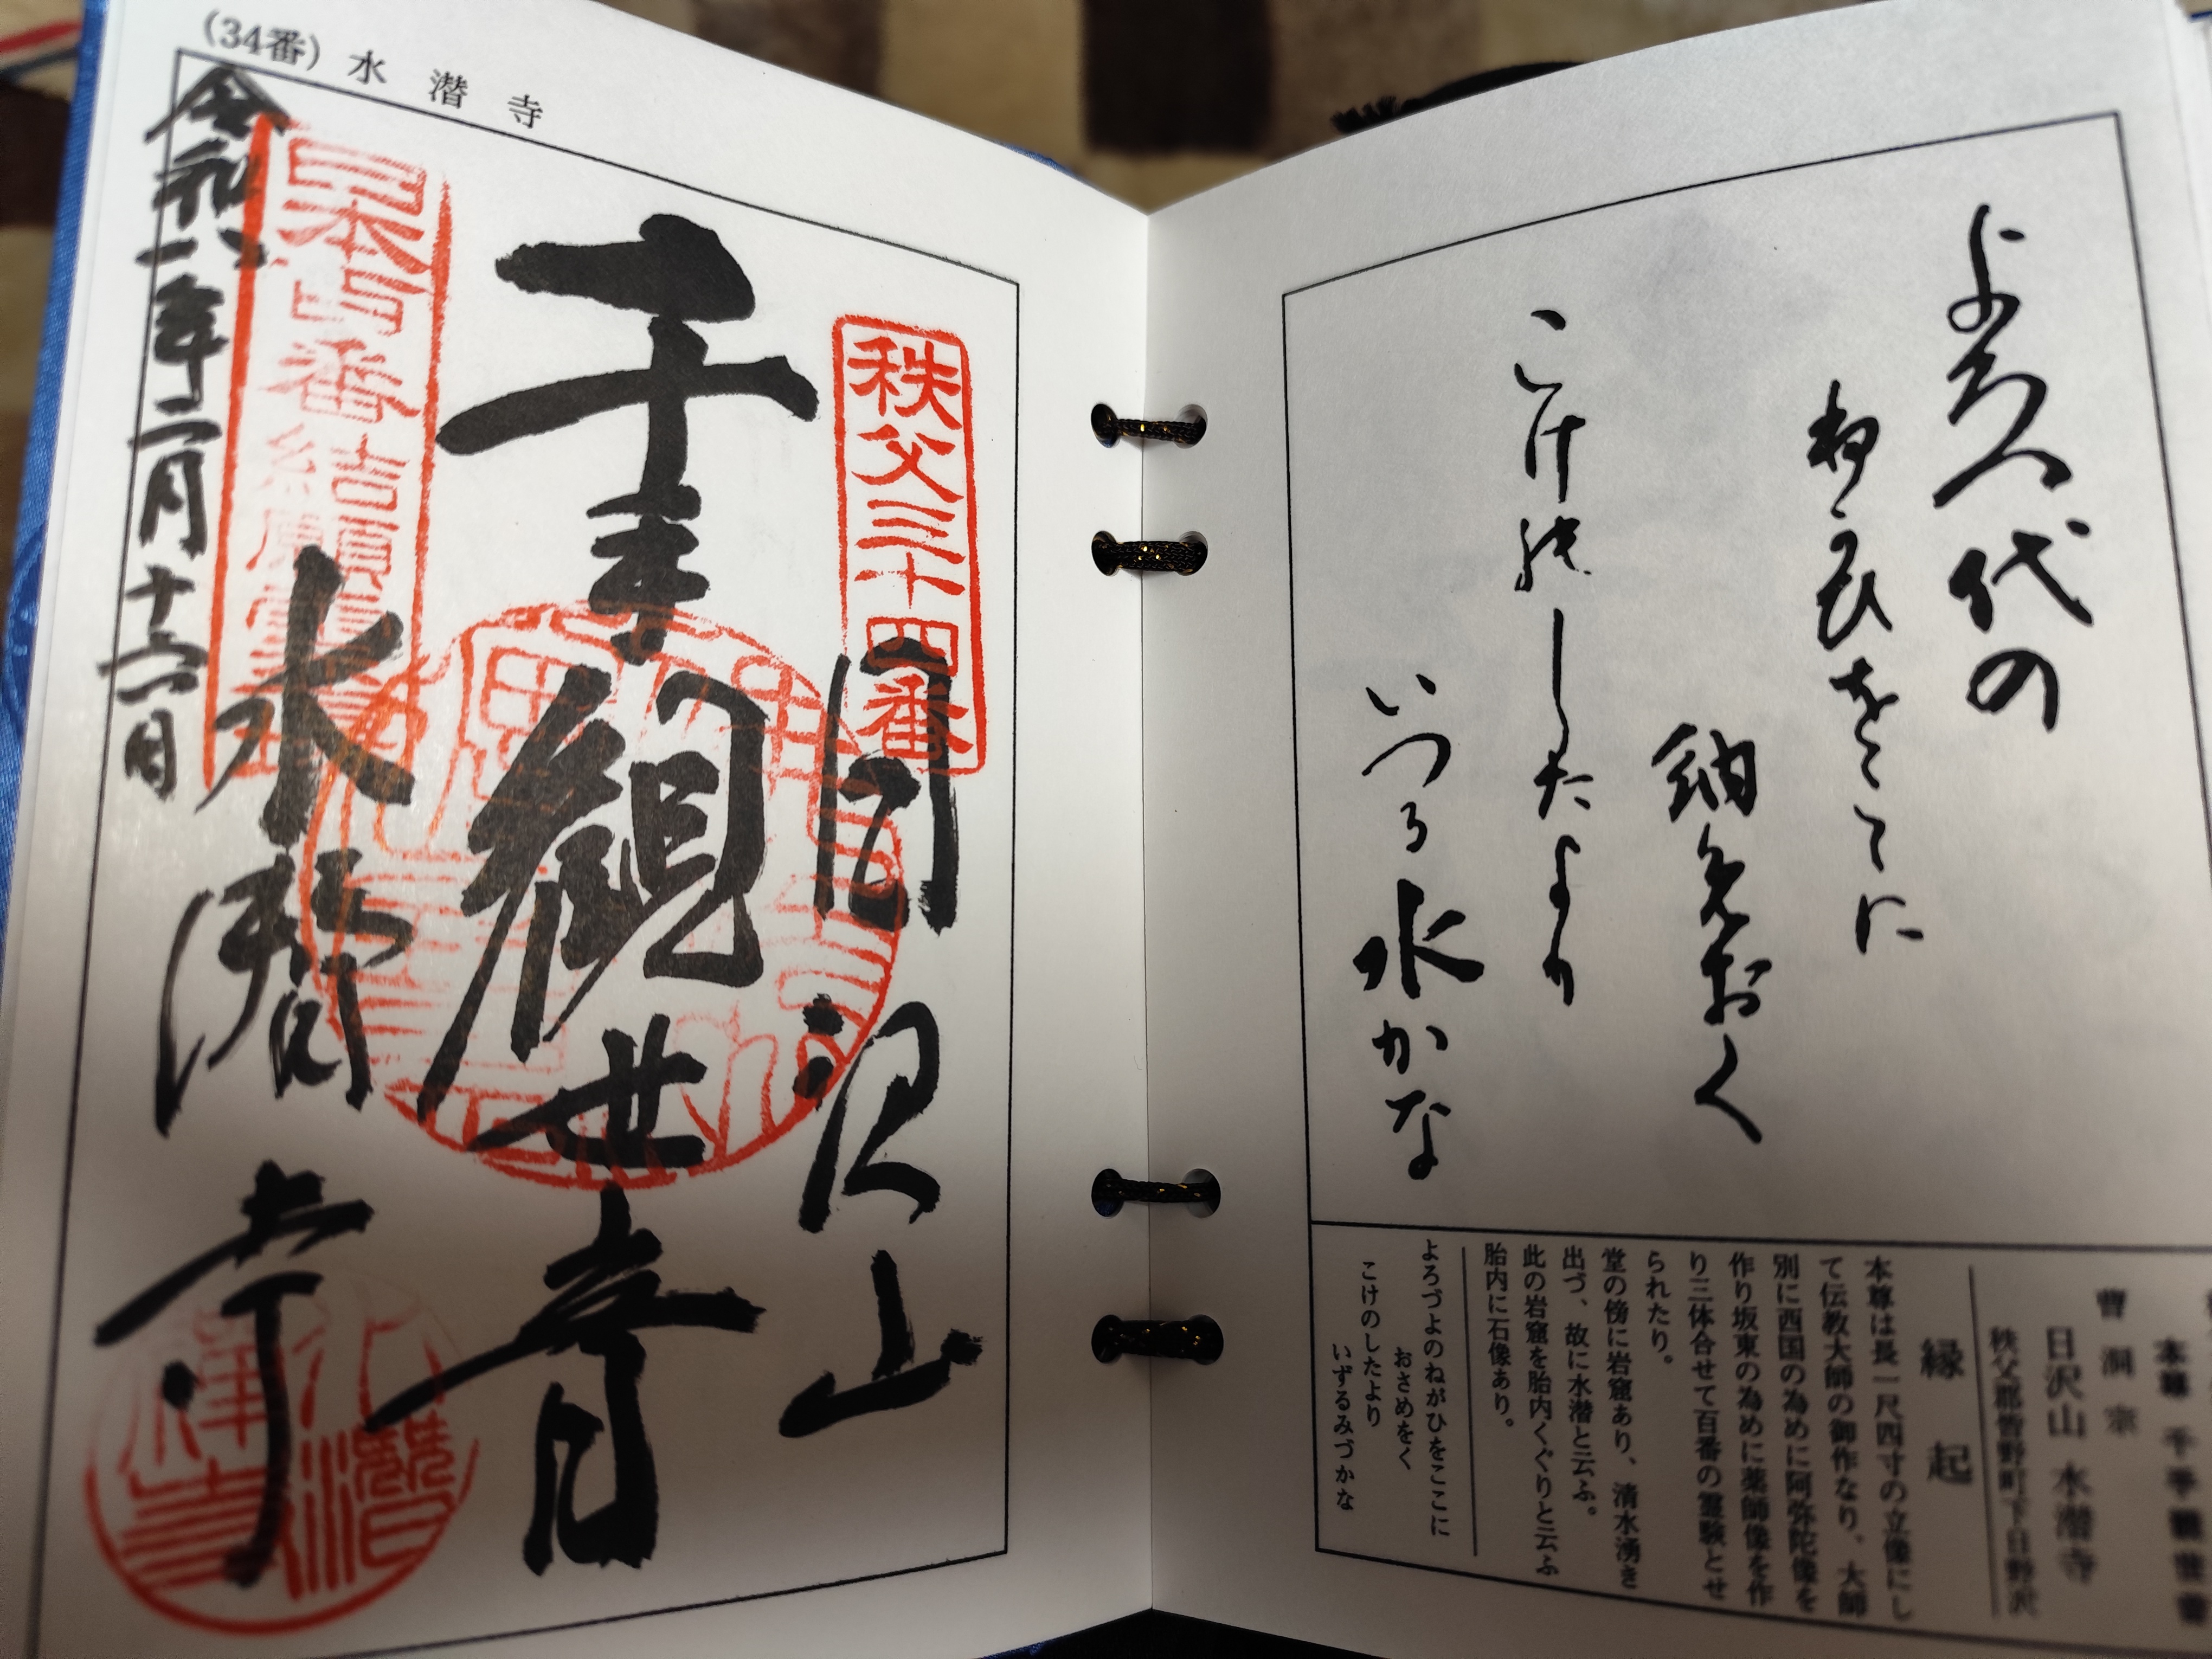 (34番) 水潜寺
秩父三十四番
日沢山
千手観世音
水潜寺
日本百番結願
令和八年二月十六日
水潜禅寺
よろづ代の
ねがひをここに
納めおく
こけのしたより
いつる水かな
本尊 千手観世音
曹洞宗
日沢山 水潜寺
秩父郡皆野町下日野沢
縁起
本尊は長一尺四寸の立像にし
て伝教大師の御作なり、大師
別に西国の為めに阿弥陀像を
作り坂東の為めに薬師像を作
り三体合せて百番の霊験とせ
られたり。
堂の傍に岩窟あり、清水湧き
出づ、故に水潜と云ふ。
此の岩窟を胎内くぐりと云ふ
胎内に石像あり。
よろづよのねがひをここに
おさめをく
こけのしたより
いずるみづかな